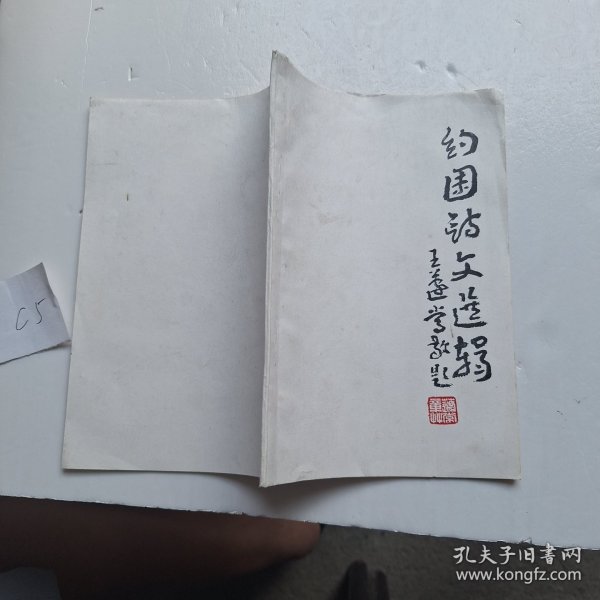 约园诗文选辑
王蘧常敬题
C5
孔夫子旧书网
www.kongfz.com